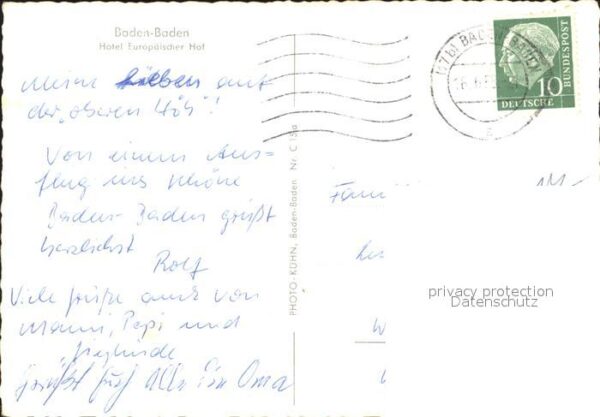 Baden-Baden
Hotel Europäischer Hof
Meine Lieben auf
der "oberen Höh"!
Von einem Aus=
flug ins schöne
Baden-Baden grüßt
herzlichst
Rolf
Viele Grüße auch von
Mami, Papi und
Sieglinde
grüßt Euch Alle Eure Oma
PHOTO-KÜHN, Baden-Baden Nr. C 15a
(17b) BADEN-BADEN
10
DEUTSCHE BUNDESPOST
Fam
1M-
privacy protection
Datenschutz